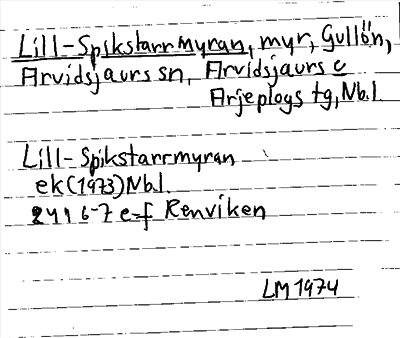 Lill-Spikstarrmyran, myr, Gullön,
Arvidsjaurs sn, Arvidsjaurs o
Arjeplogs tg, Nbl.
Lill-Spikstarrmyran
ek (1973) Nbl.
24I 6-7 e-f Renviken
LM 1974